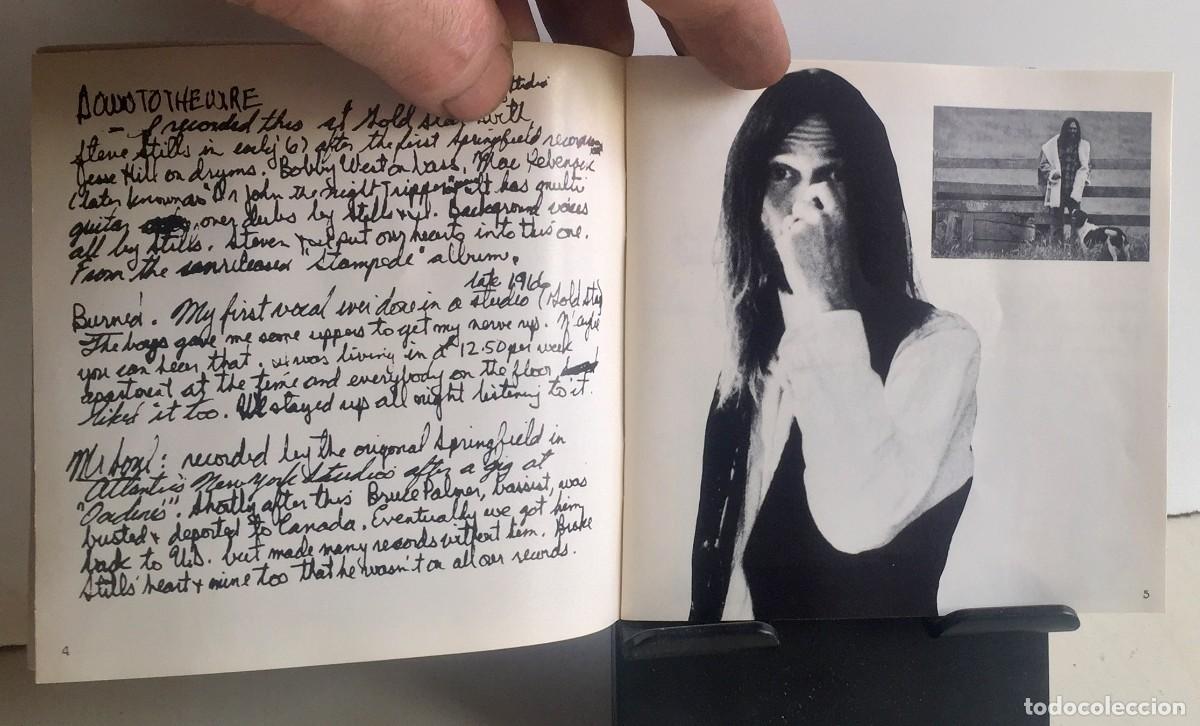 DOWN TO THE WIRE
– I recorded this at Gold Star with
Steve Stills in early '67 after the first Springfield record
Jesse Hill on drums. Bobby West on bass, "Mac Rebenack
(later known as "Dr John the Night Tripper" It has multi
guitar over dubs by Stills + I. Background voices
all by Stills. Steven + put our hearts into this one.
From the unreleased "Stampede" album.
late 1966
Burned. My first vocal ever done in a studio (Gold Star)
The boys gave me some uppers to get my nerve up. Maybe
you can hear that. I was living in a $12.50 per week
apartment at the time and everybody on the floor
liked it too. We stayed up all night listening to it.
Mr Soul: recorded by the origonal Springfield in
Atlantic's New York Studios after a gig at
"Ondines". Shortly after this Bruce Palmer, bassist, was
busted + deported to Canada. Eventually we got him
back to U.S. but made many records without him. Broke
Stills' heart + mine too that he wasn't on all our records.
4
5
todocoleccion